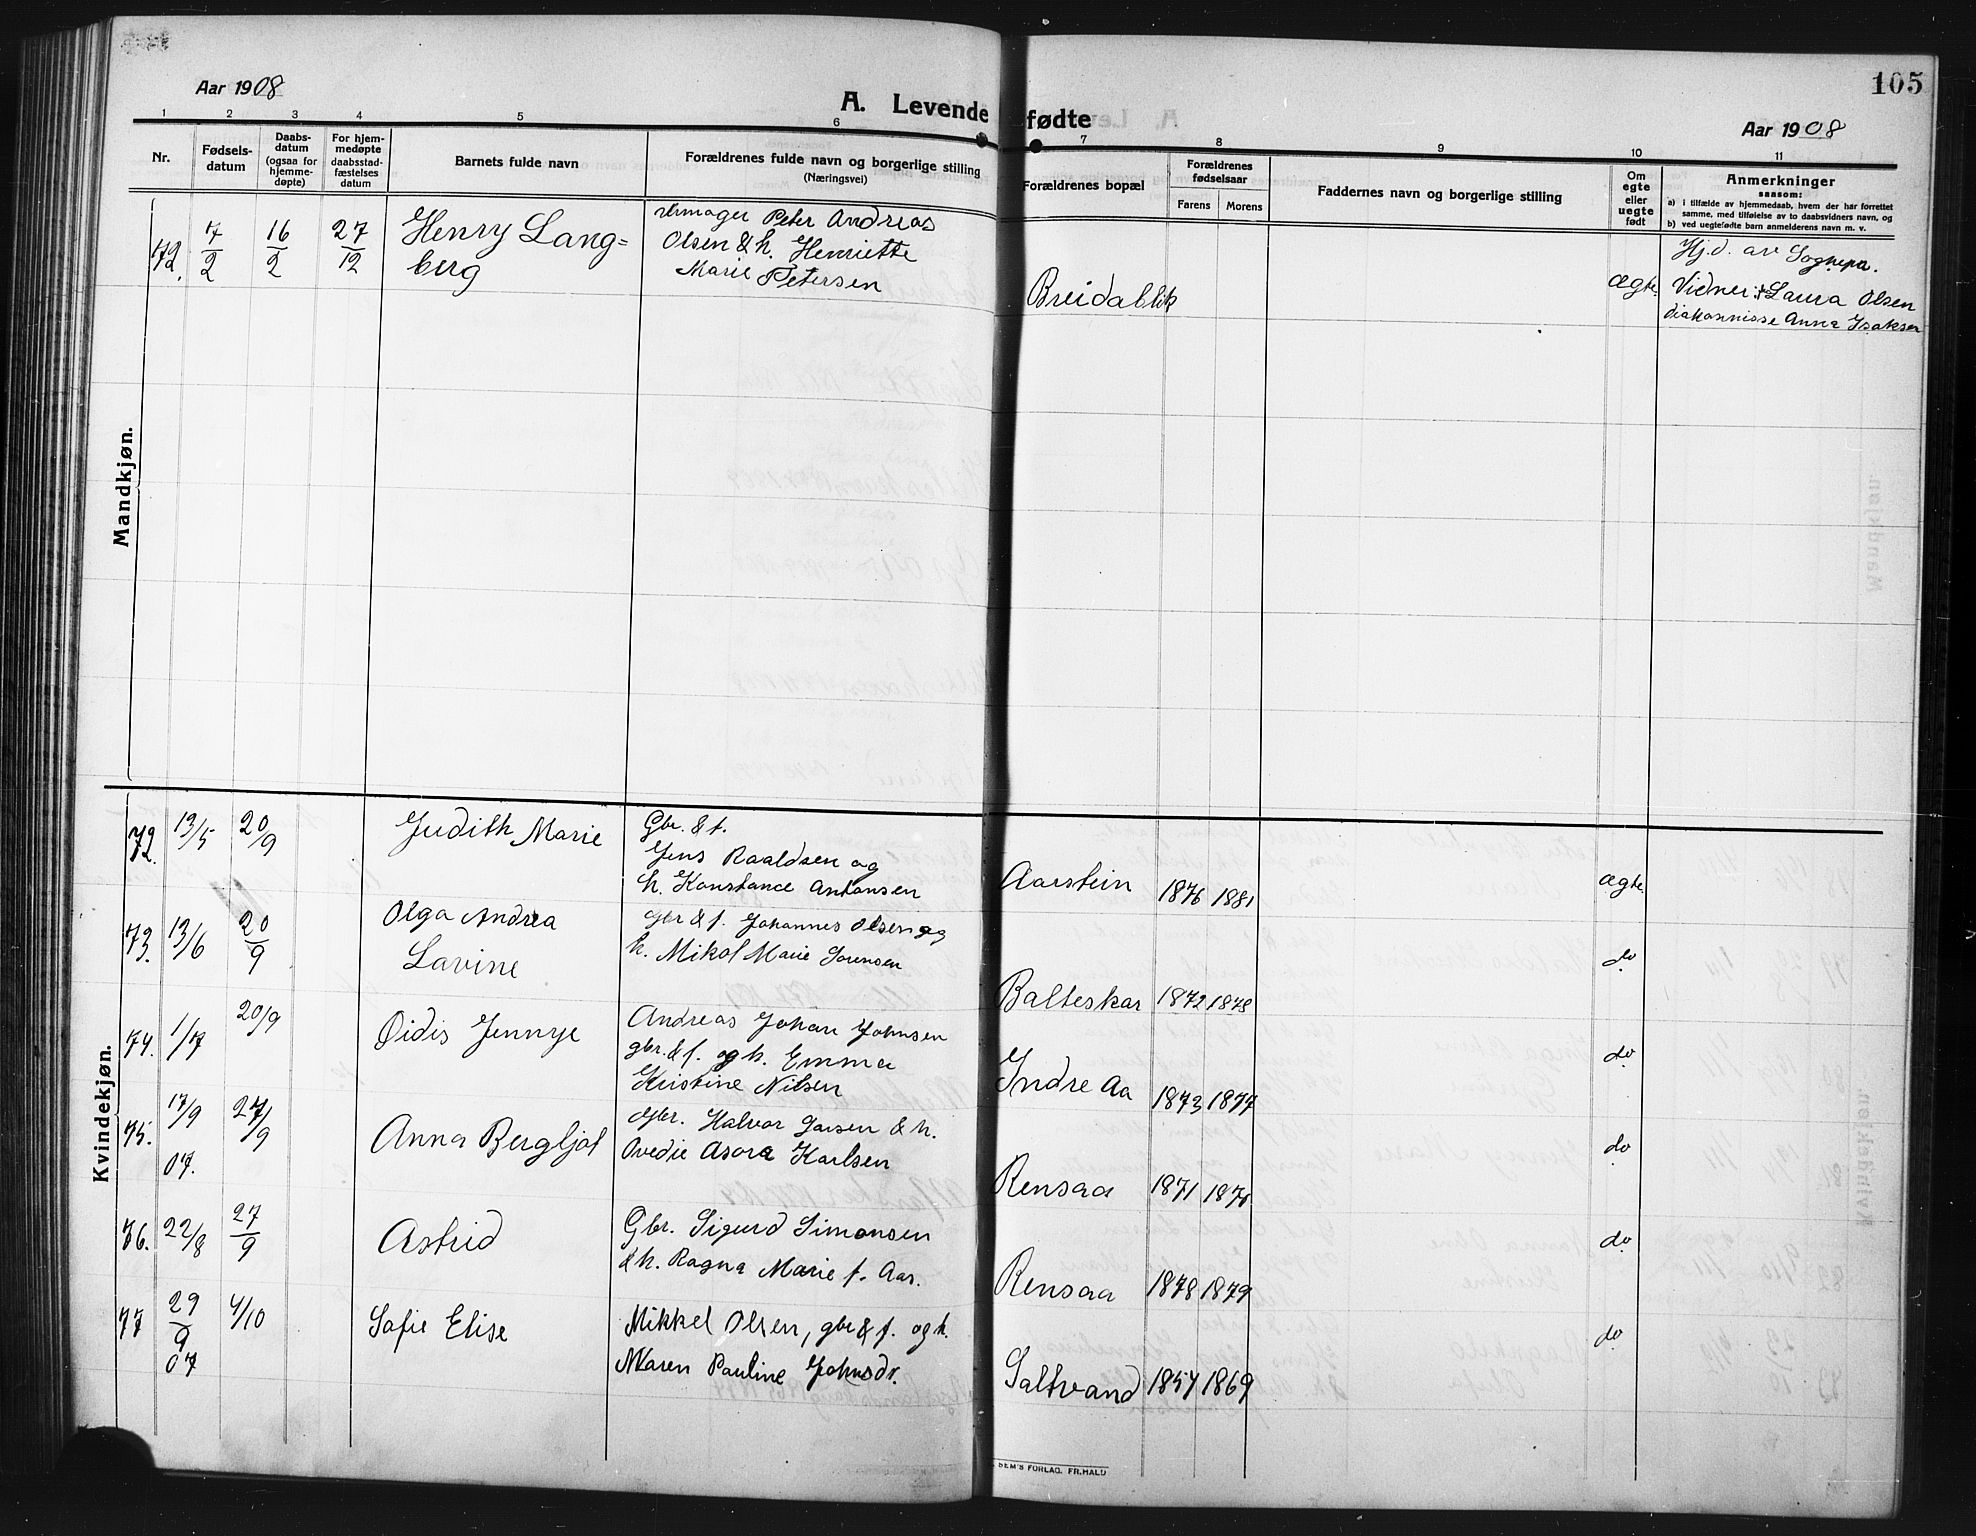 105
Aar 1908
A. Levende fødte
Aar 1908
1 2 3 4 5 6 7 8 9 10 11
Nr.
Fødsels-
datum
Daabs-
datum
(ogsaa for
hjemme-
døpte)
For hjem-
medøpte
daabsstad-
fæstelses
datum
Barnets fulde navn
Forældrenes fulde navn og borgerlige stilling
(Næringsvei)
Forældrenes bopæl
Forældrenes
fødselsaar
Farens Morens
Faddernes navn og borgerlige stilling
Om
egte
eller
uegte
født
Anmerkninger
saasom:
a) i tilfælde av hjemmedaab, hvem der har forrettet
samme, med tilføielse av to daabsvidners navn, og
b) ved uegtefødte barn anmelderens navn m. v.
Mandkjøn.
72. 7/2 16/2 27/12
Henry Lang=
berg
Urmager Peter Andreas
Olsen & h. Henriette
Marie Petersen
Breidablik
ægte.
Hj.d. av Sognepr.
Vidner: Laura Olsen
diakonnisse Anna Isaksen
Kvindekjøn.
72. 13/5 20/9 Judith Marie
Gbr. & f.
Jens Roaldsen og
h. Konstance Antonsen
Aarstein 1876 1881 ægte.
73. 13/6 20/9 Olga Andrea
Lavine
gbr & f. Johannes Olsen og
h. Mikal Marie Sørensen
Balteskar 1872 1878 do
74. 1/7 20/9 Øidis Jennye
Andreas Johan Johnsen
gbr. & f. og h. Emma
Kristine Nilsen
Indre Aa 1873 1877 do
75. 17/9 07. 27/9 Anna Bergljot
Gbr. Halvor Larsen & h.
Ovedie Asora Karlsen
Rensaa 1871 1871 do
76. 22/8 27/9 Astrid
Gbr. Sigurd Simonsen
& h. Ragna Marie f. Aar.
Rensaa 1878 1879 do
77 29/9 07 4/10 Sofie Elise
Mikkel Olsen, gbr & f. og h.
Maren Pauline Johnsdr.
Saltvand 1857 1869 do
SEM'S FORLAG. FR.HALD